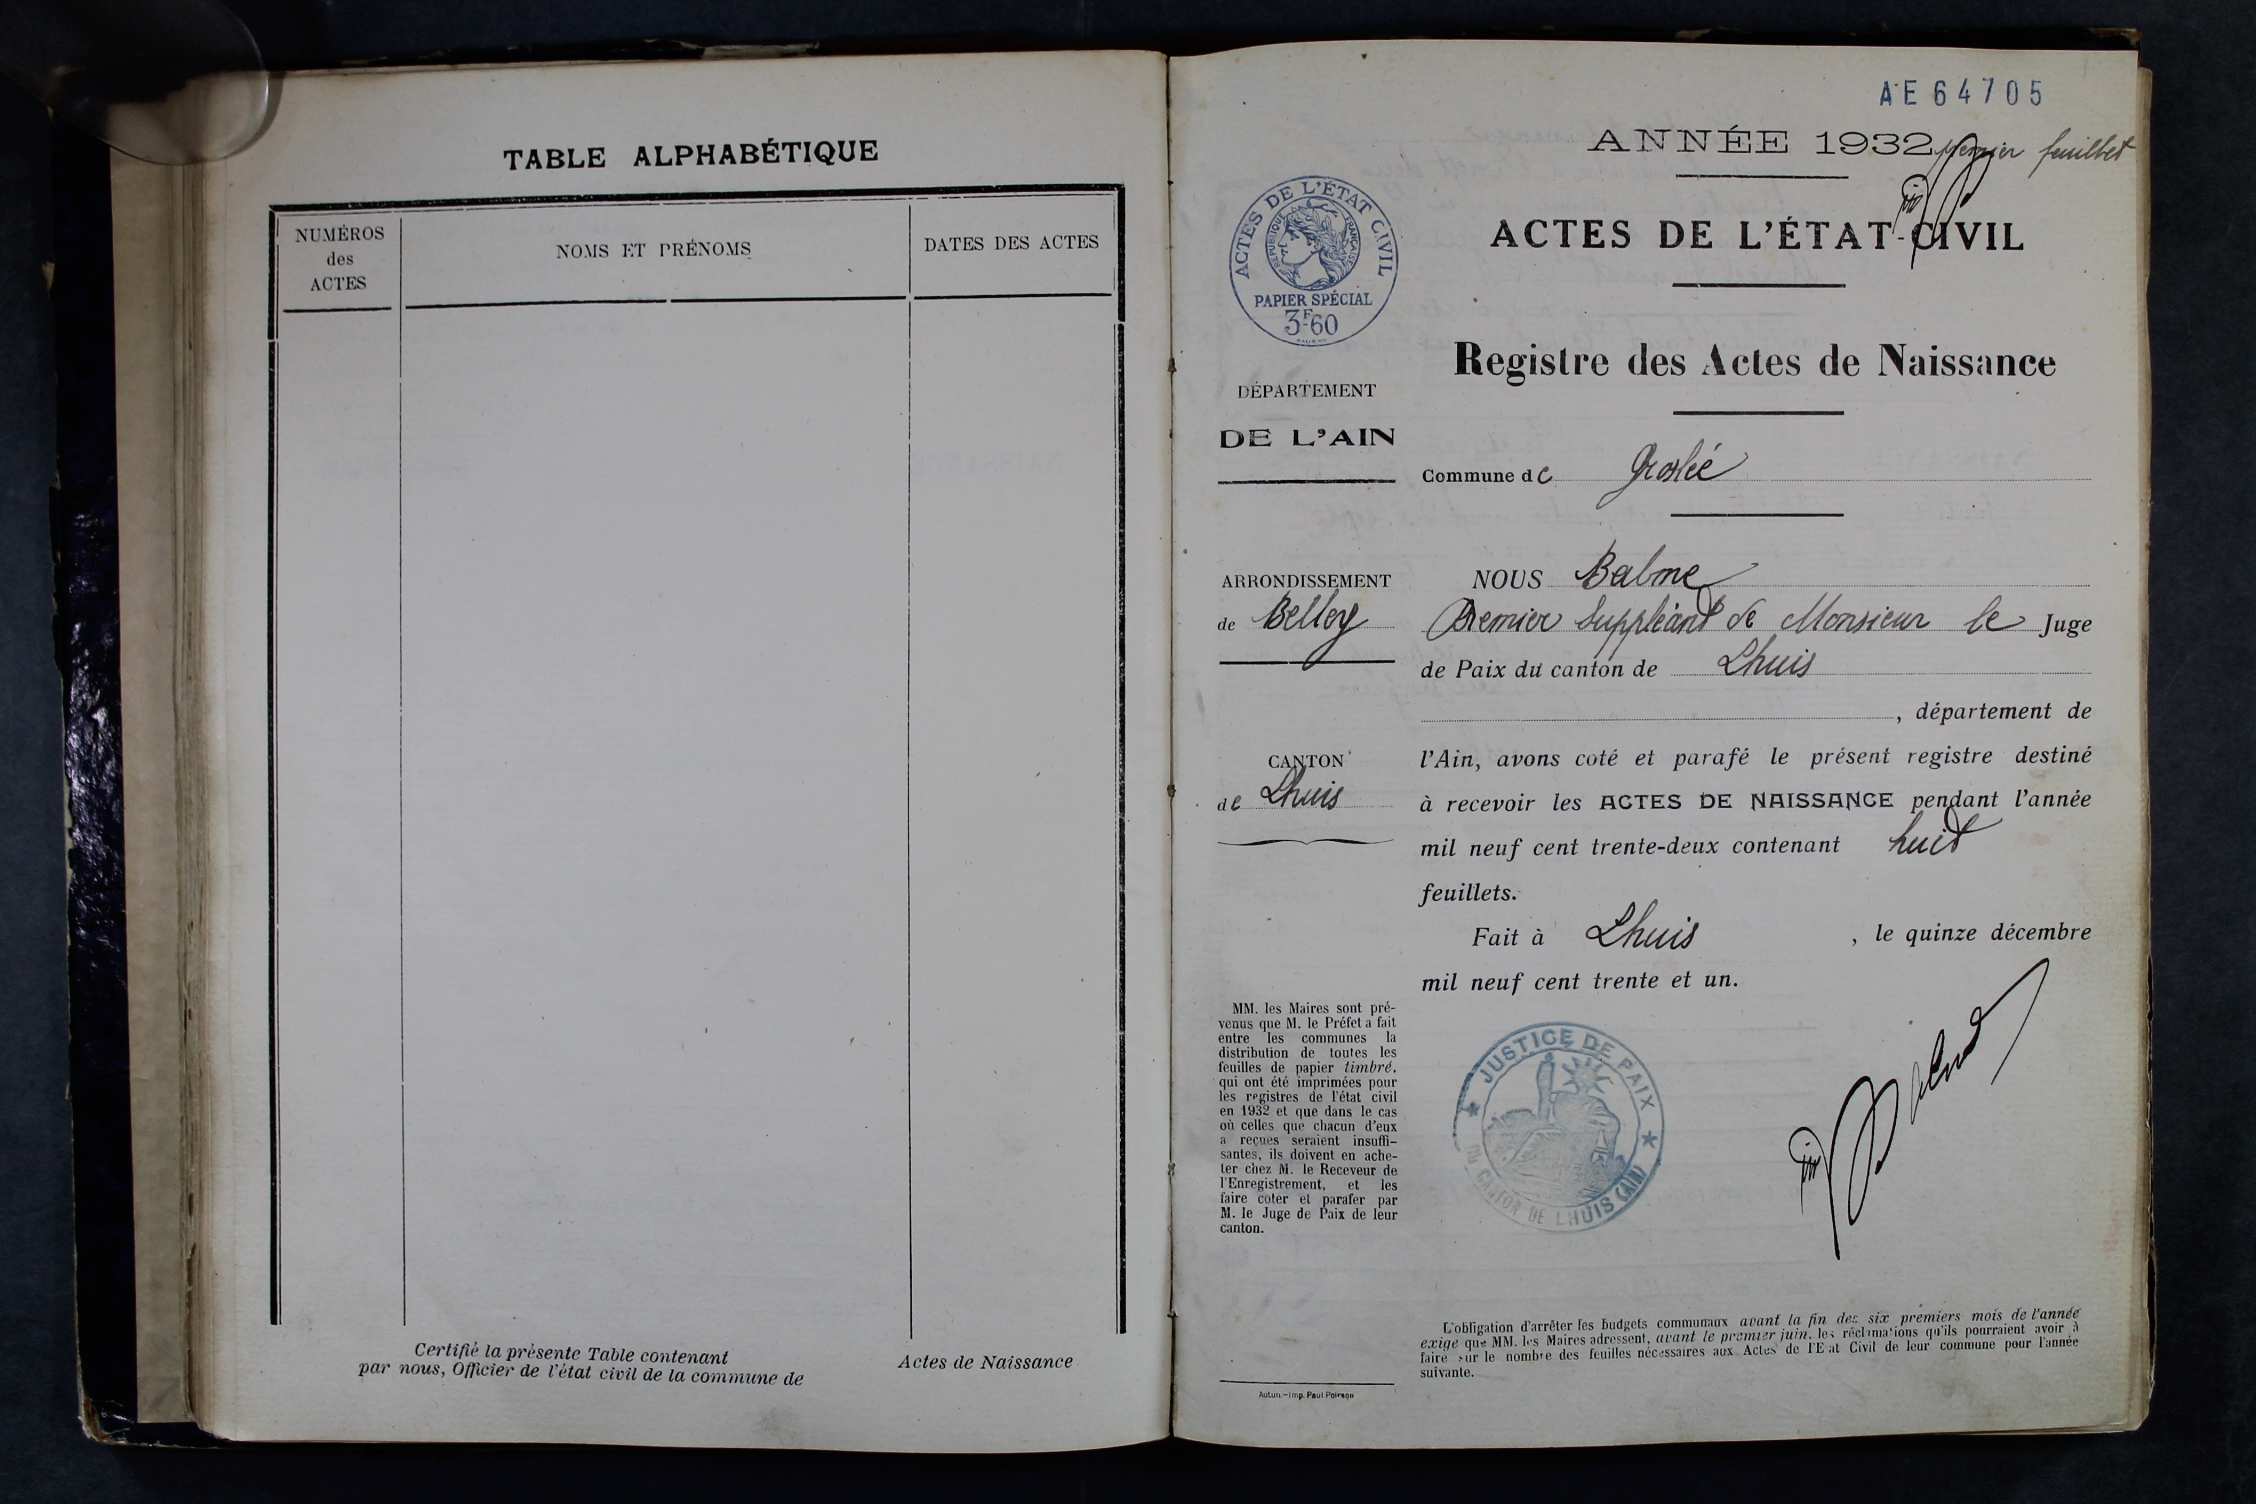 TABLE ALPHABÉTIQUE
NUMÉROS
des
ACTES
NOMS ET PRÉNOMS
DATES DES ACTES
Certifié la présente Table contenant
Actes de Naissance
par nous, Officier de l'état civil de la commune de
AE 64705
ANNÉE 1932
premier feuillet
ACTES DE L'ÉTAT-CIVIL
ACTES DE L'ÉTAT CIVIL
RÉPUBLIQUE FRANÇAISE
PAPIER SPÉCIAL
3F60
Registre des Actes de Naissance
DÉPARTEMENT
DE L'AIN
Commune de Groslée
ARRONDISSEMENT
de Belley
CANTON
de Lhuis
NOUS Balme
Premier Suppléant de Monsieur le Juge
de Paix du canton de Lhuis
, département de
l'Ain, avons coté et parafé le présent registre destiné
à recevoir les ACTES DE NAISSANCE pendant l'année
mil neuf cent trente-deux contenant huit
feuillets.
Fait à Lhuis , le quinze décembre
mil neuf cent trente et un.
MM. les Maires sont pré-
venus que M. le Préfet a fait
entre les communes la
distribution de toutes les
feuilles de papier timbré,
qui ont été imprimées pour
les registres de l'état civil
en 1932 et que dans le cas
où celles que chacun d'eux
a reçues seraient insuffi-
santes, ils doivent en ache-
ter chez M. le Receveur de
l'Enregistrement, et les
faire coter et parafer par
M. le Juge de Paix de leur
canton.
JUSTICE DE PAIX
DU CANTON DE LHUIS (AIN)
Balme
L'obligation d'arrêter les budgets communaux avant la fin des six premiers mois de l'année
exige que MM. les Maires adressent, avant le premier juin, les réclamations qu'ils pourraient avoir à
faire sur le nombre des feuilles nécessaires aux Actes de l'Etat Civil de leur commune pour l'année
suivante.
Autun. - Imp. Paul Poirson